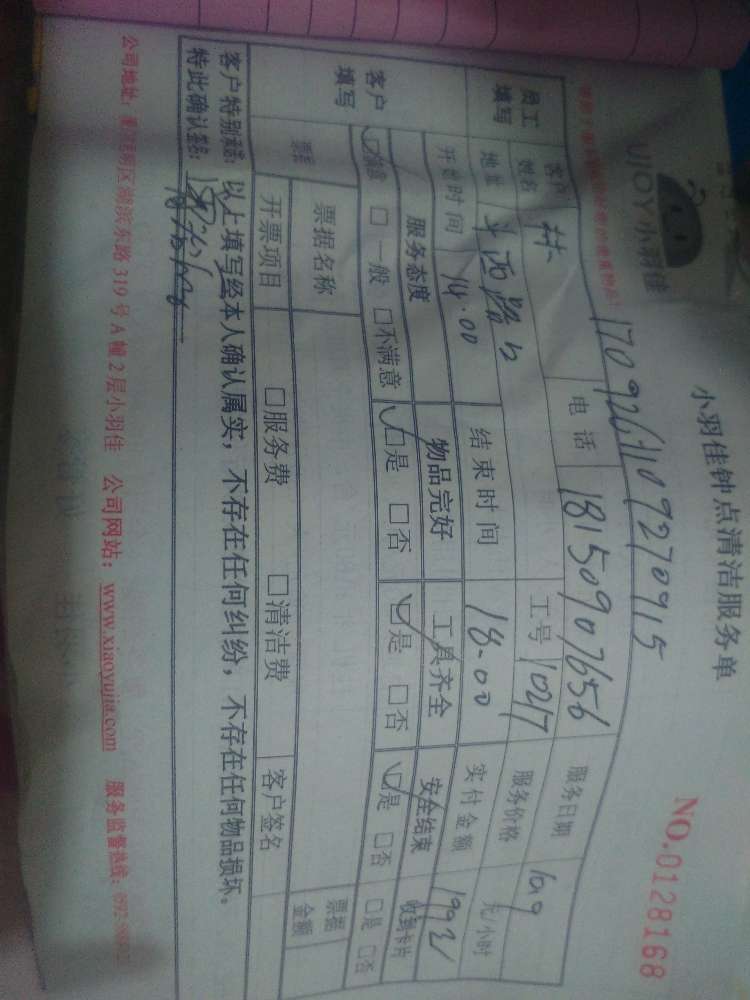 JJOY小羽佳
小羽佳钟点清洁服务单
NO.0128168
1709261109270915
员工填写
客户姓名 林 电话 18150907656 服务日期 1019
地址 斗西路 工号 10217 服务价格 元/小时
开始时间 14.00 结束时间 18.00 实付金额 199元
客户填写
服务态度 物品完好 工具齐全 安全结束 收到卡片
☑满意 □一般 □不满意 ☑是 □否 ☑是 □否 ☑是 □否 □是 □否
票据名称 票据金额
开票项目 □服务费 □清洁费 客户签名
客户特别承诺：以上填写经本人确认属实，不存在任何纠纷，不存在任何物品损坏。
特此确认签名：
公司地址：明区湖滨东路319号A幢2层小羽佳 公司网站：www.xiaoyujia.com 服务监督热线：